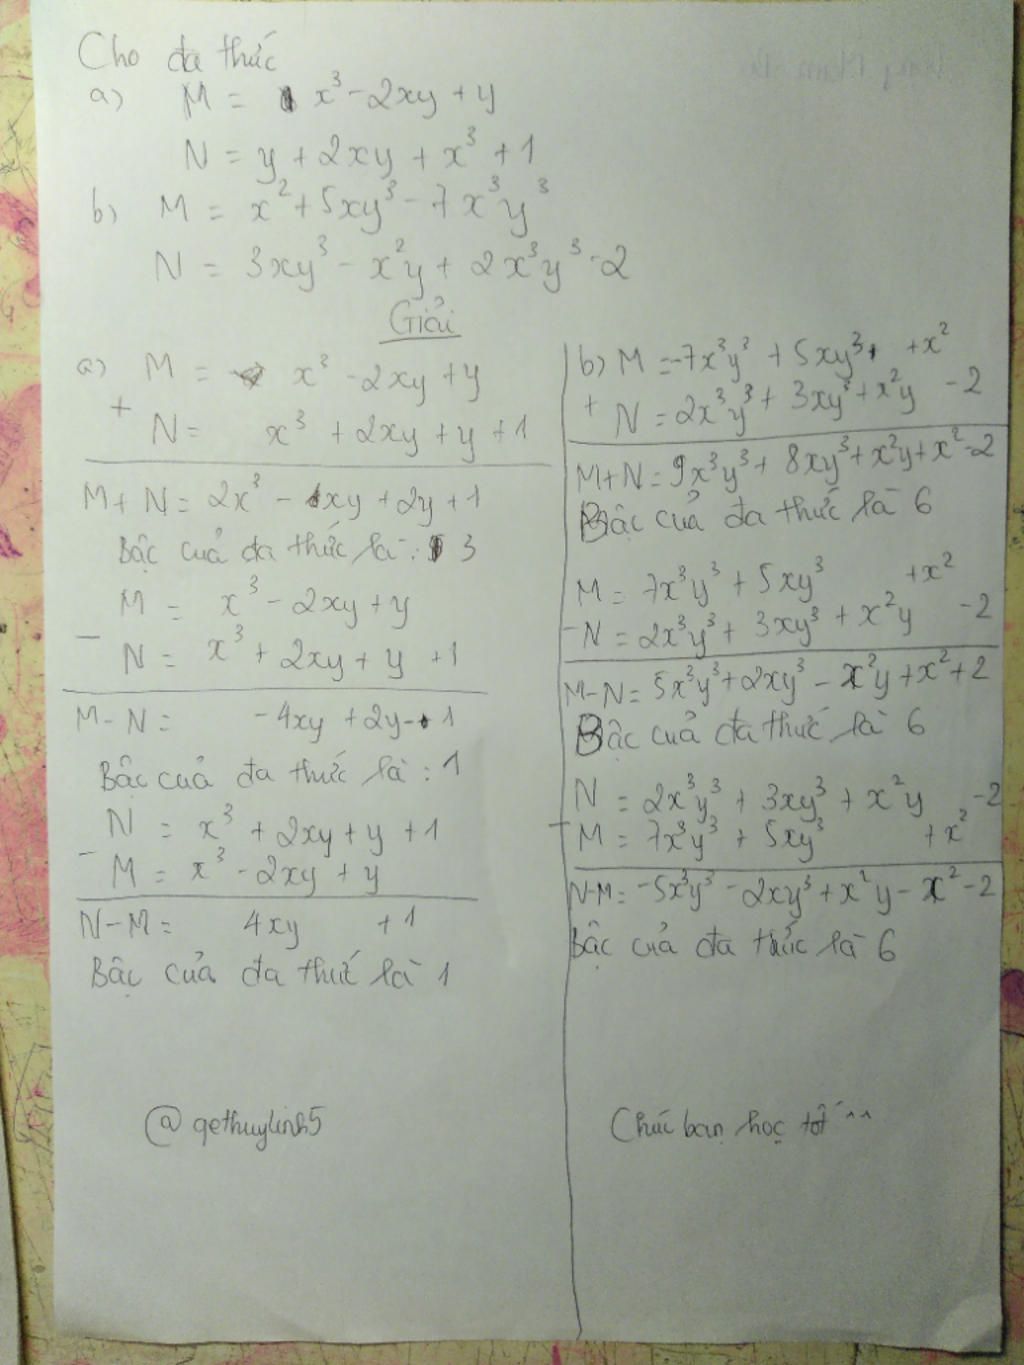 Cho đa thức
a) M = x³ - 2xy + y
N = y + 2xy + x³ + 1
b) M = x² + 5xy³ - 7x³y³
N = 3xy³ - x²y + 2x³y³ - 2
Giải
a) M = x³ - 2xy + y
+ N = x³ + 2xy + y + 1
M + N = 2x³ - xy + 2y + 1
Bậc của đa thức là : 3
M = x³ - 2xy + y
- N = x³ + 2xy + y + 1
M - N = - 4xy + 2y - 1
Bậc của đa thức là : 1
N = x³ + 2xy + y + 1
- M = x³ - 2xy + y
N - M = 4xy + 1
Bậc của đa thức là 1
@gethuylinh5
b) M = -7x³y³ + 5xy³ + x²
+ N = 2x³y³ + 3xy³ + x²y - 2
M + N = 9x³y³ + 8xy³ + x²y + x² - 2
Bậc của đa thức là 6
M = 7x³y³ + 5xy³ + x²
- N = 2x³y³ + 3xy³ + x²y - 2
M - N = 5x³y³ + 2xy³ - x²y + x² + 2
Bậc của đa thức là 6
N = 2x³y³ + 3xy³ + x²y - 2
- M = 7x³y³ + 5xy³ + x²
N - M = -5x³y³ - 2xy³ + x²y - x² - 2
Bậc của đa thức là 6
Chúc bạn học tốt ^^